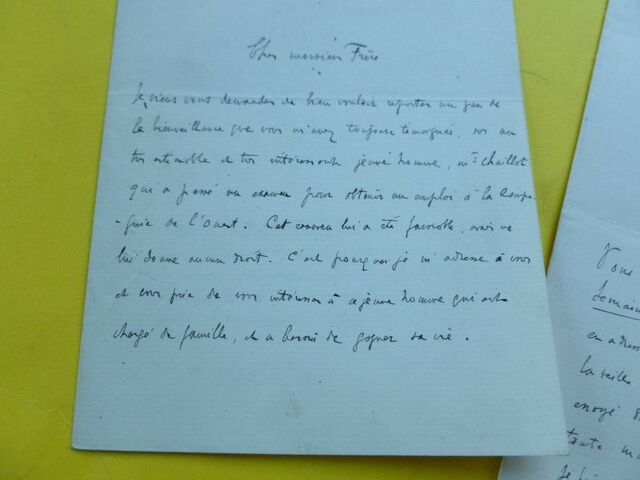 Cher monsieur Frère
Je viens vous demander de bien vouloir reporter un peu de
la bienveillance que vous m'avez toujours témoignée, sur un
très estimable et très intéressant jeune homme, Mr Chaillot
qui a passé un examen pour obtenir un emploi à la Compa
-gnie de l'Ouest. Cet examen lui a été favorable, mais ne
lui donne aucun droit. C'est pourquoi je m'adresse à vous
et vous prie de vous intéresser à ce jeune homme qui est
chargé de famille, et a besoin de gagner sa vie.
Vous
Semain
en adress
la veille
envoyé
toute